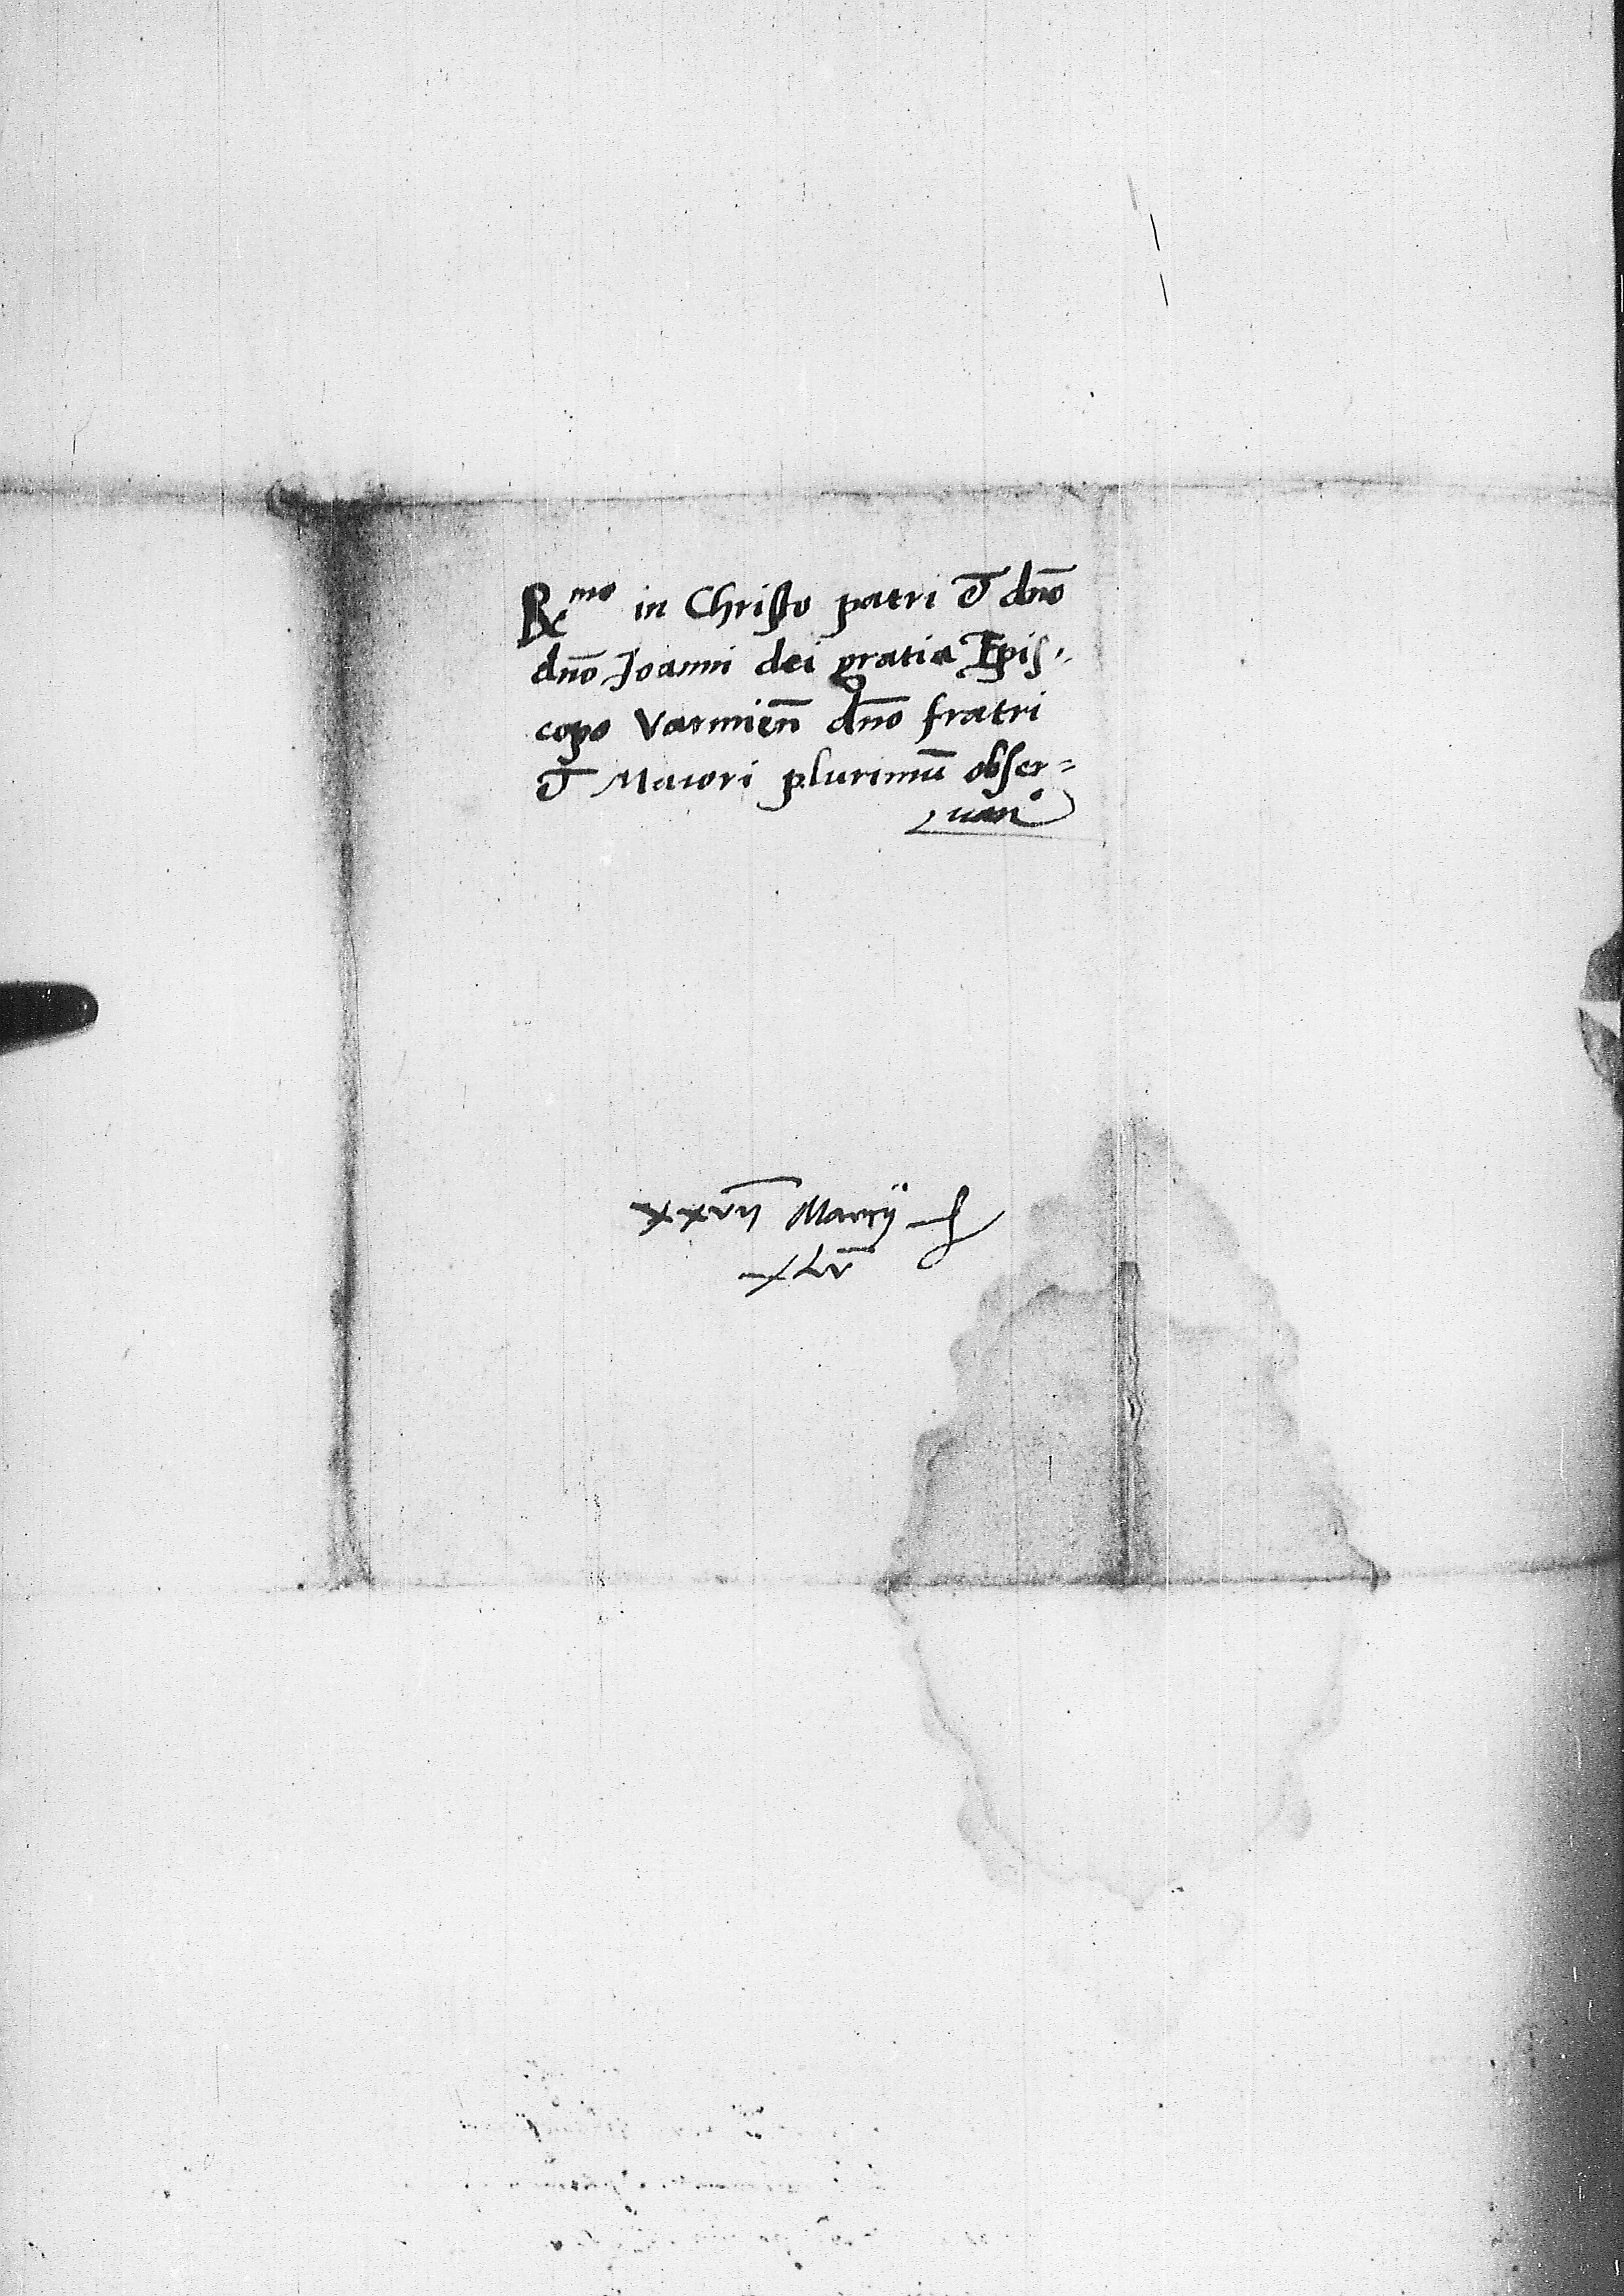 R^mo in Christo patri et dño
dño Joanni dei gratia Epis,,
copo Varmien̄ dño fratri
et Maiori plurimū obser=
uañ
xxvij Marcij
xLv